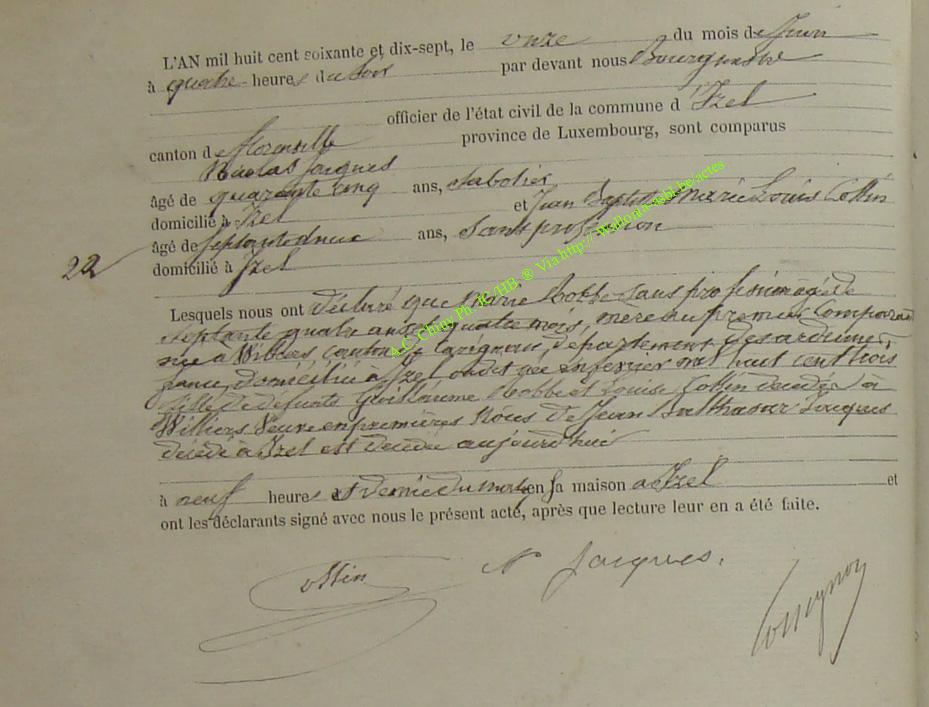 L'AN mil huit cent soixante et dix-sept, le onze du mois de Juin
à quatre heures du soir par devant nous Bourgmestre
officier de l'état civil de la commune d'Izel
canton de Florenville province de Luxembourg, sont comparus
Nicolas Jacques
âgé de quarante cinq ans, Sabotier
domicilié à Izel et Jean Baptiste Marie Louis Collin
âgé de septante deux ans, Sans profession
22
domicilié à Izel
Lesquels nous ont déclaré que Marie Hobbe sans profession agée de
septante quatre ans et quatre mois, mère du premier Comparant
née à Williers, canton de Carignan, département des ardennes,
france, domiciliée à Izel née en février mil huit cent trois
fille de défunts Guillaume Hobbe et Louise Collin décédés à
Williers Veuve en premières Noces de Jean Balthasar Jacques
décédé à Izel est décédée aujourd'hui
à neuf heures et demie du matin en sa maison à Izel et
ont les déclarants signé avec nous le présent acte, après que lecture leur en a été faite.
Collin N Jacques.
A.C. Chiny Ph. JZ. HB. ® Via http://Wallonia-asbl.be/actes